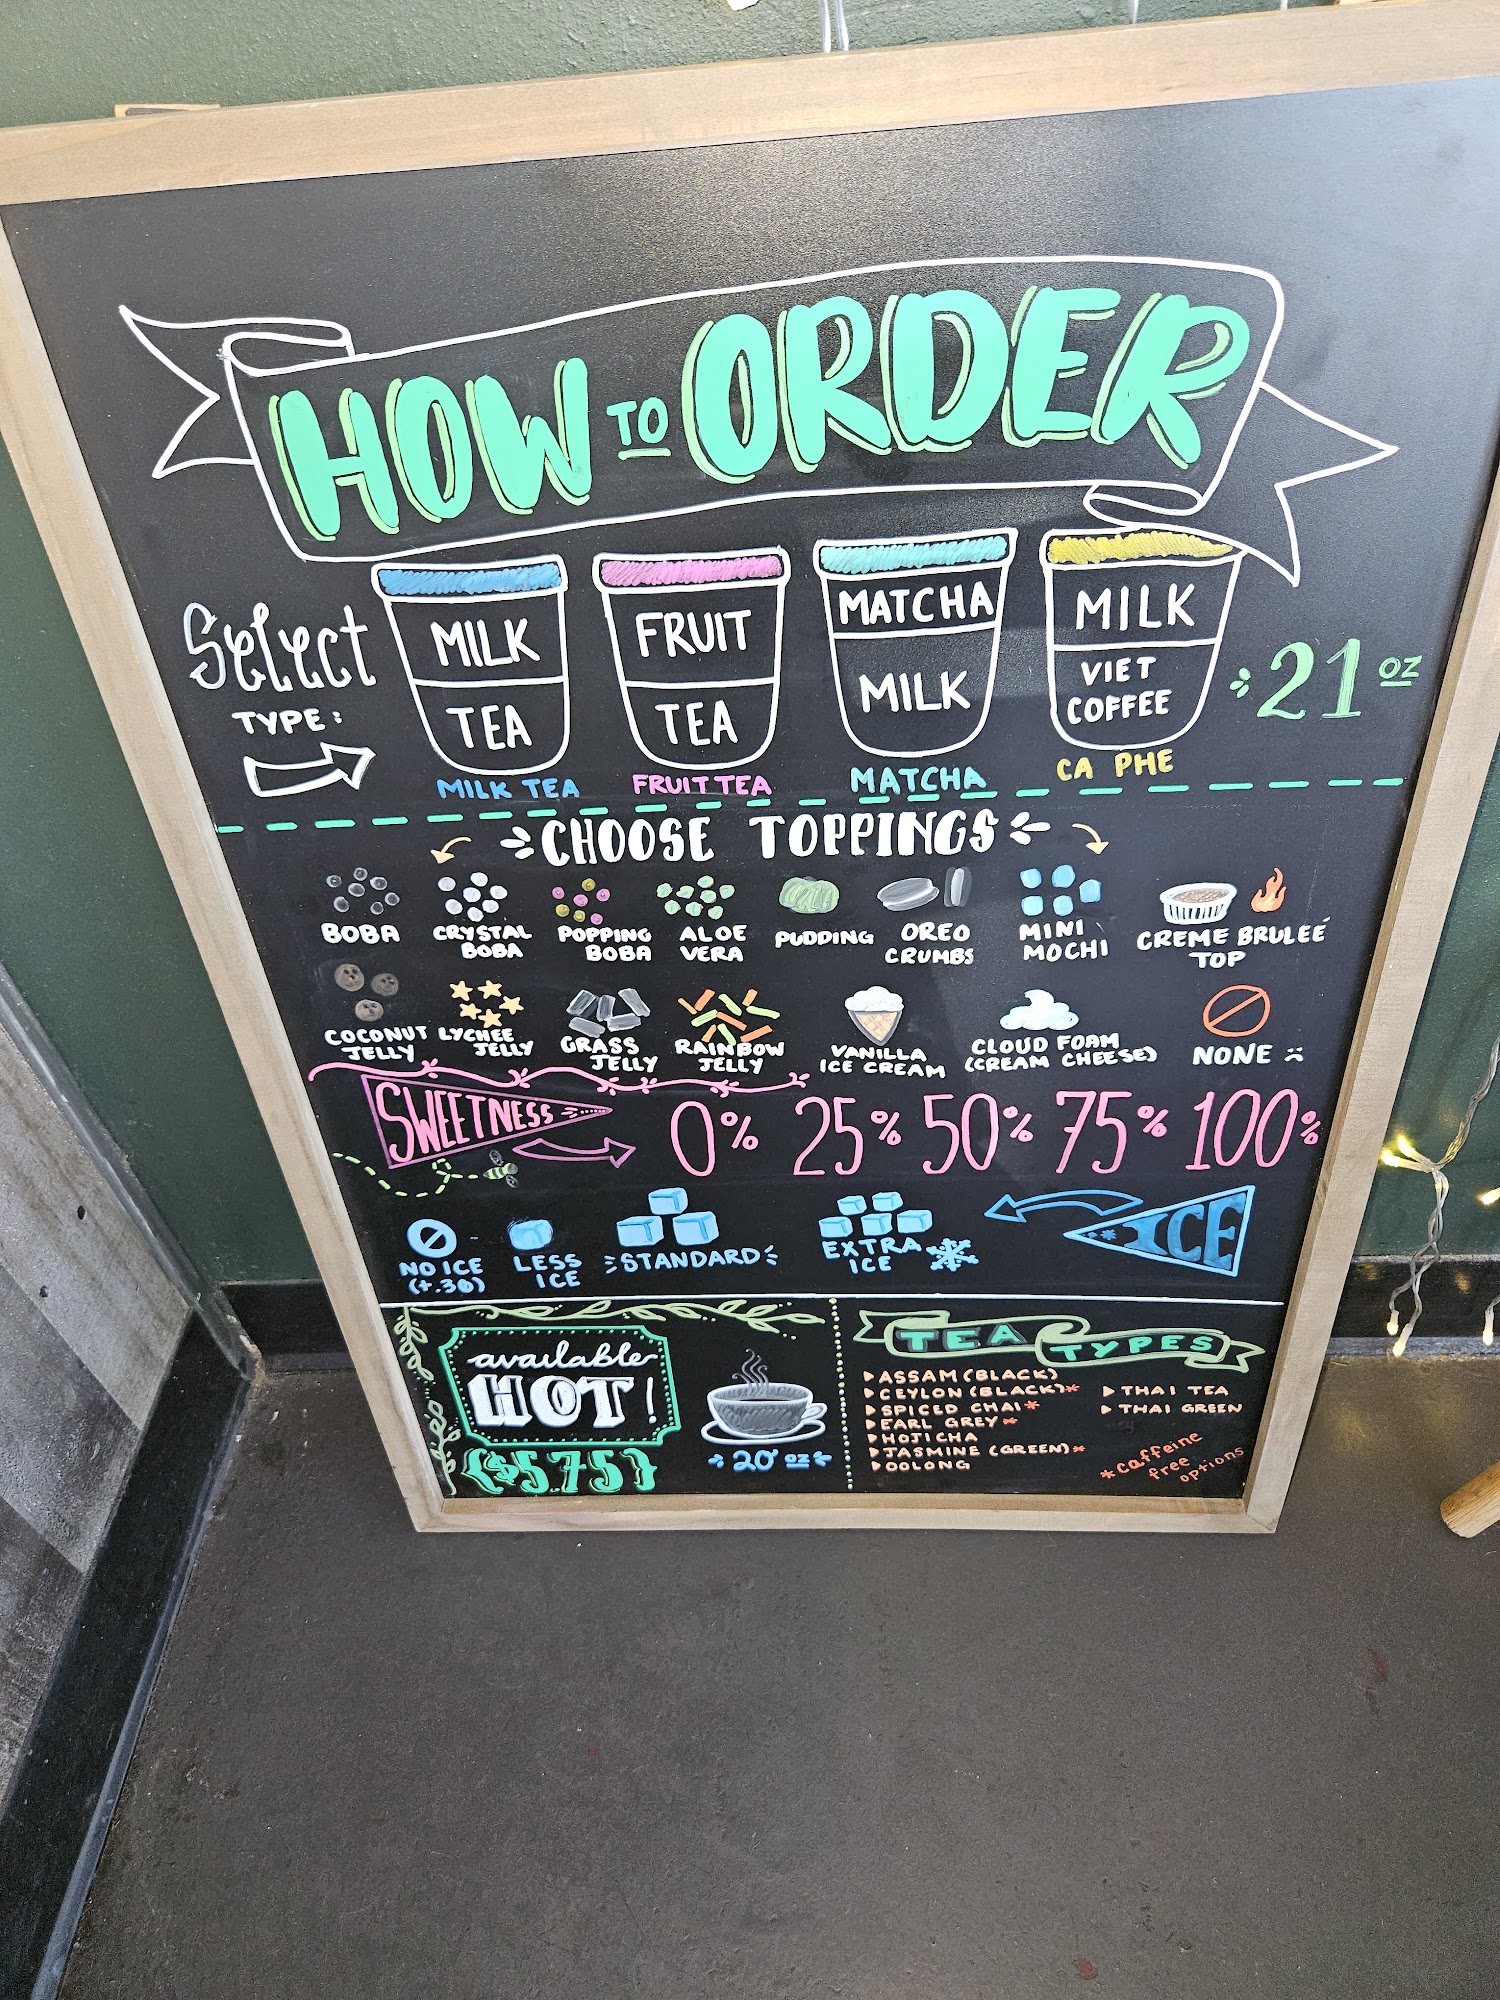 HOW TO ORDER
Select
TYPE:
MILK
TEA
MILK TEA
FRUIT
TEA
FRUIT TEA
MATCHA
MILK
MATCHA
MILK
VIET
COFFEE
CA PHE
21 OZ
CHOOSE TOPPINGS
BOBA
CRYSTAL
BOBA
POPPING
BOBA
ALOE
VERA
PUDDING
OREO
CRUMBS
MINI
MOCHI
CREME BRULEÉ
TOP
COCONUT
JELLY
LYCHEE
JELLY
GRASS
JELLY
RAINBOW
JELLY
VANILLA
ICE CREAM
CLOUD FOAM
(CREAM CHEESE)
NONE
SWEETNESS
0% 25% 50% 75% 100%
NO ICE
(+.30)
LESS
ICE
STANDARD
EXTRA
ICE
ICE
available
HOT!
{$5.75}
20 oz
TEA TYPES
ASSAM (BLACK)
CEYLON (BLACK)*
SPICED CHAI*
EARL GREY*
HOJICHA
JASMINE (GREEN)*
OOLONG
THAI TEA
THAI GREEN
*caffeine
free
options